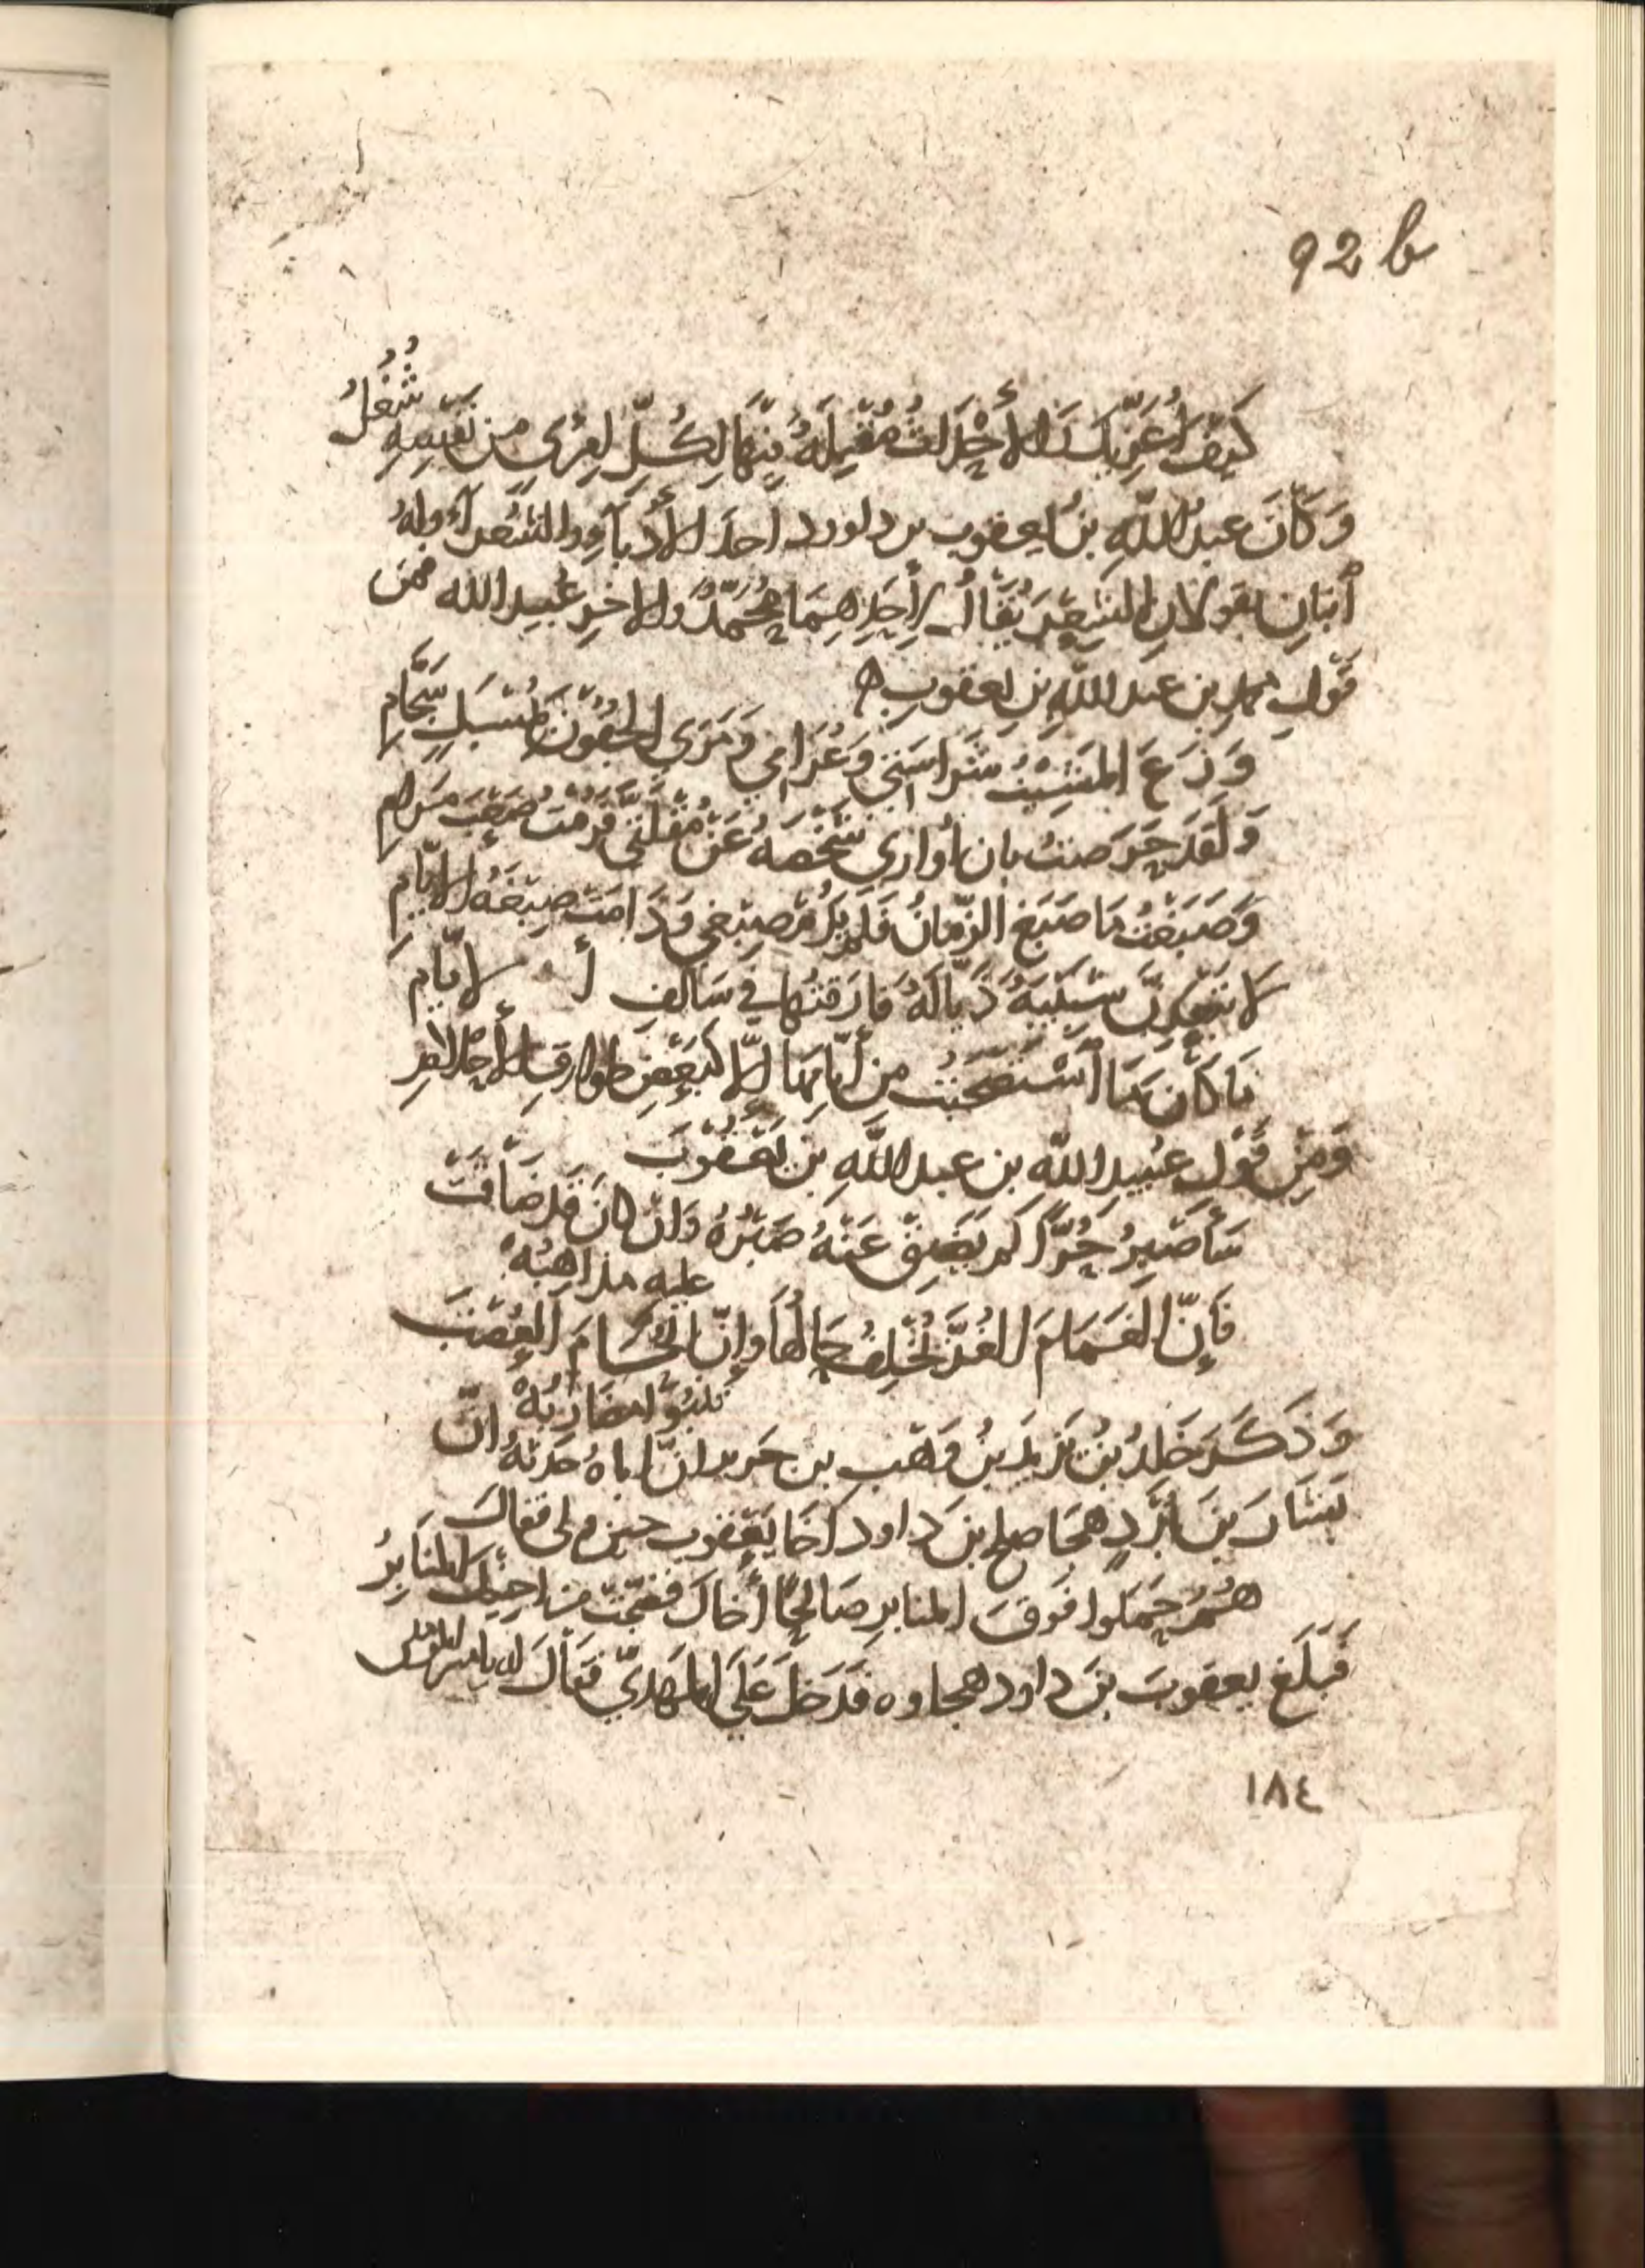 92 b
كَيْفَ أُعَزِّيكَ وَالأَحْدَاثُ مُقْبِلَةٌ فِيهَا لِكُلِّ امْرِئٍ مِنْ نَفْسِهِ شُغُلُ
وَكَانَ عبدُ اللّٰهِ بنُ يعقوب بن داود احدَ الأُدَبَآءِ والشعرآءِ وله
أبنانِ يقولانِ الشِعْرَ يُقَالُ لِأَحَدِهِمَا مُحَمَّدٌ والاخرِ عُبيد الله فمن
قَوْلِ محمدِ بن عبد اللّٰهِ بنِ يعقوب
وَزَعَ المَشِيْبُ شَراسَتِي وَغَرَامِي وَمَرَى الجُفُونَ بِمُسْبَلٍ سَجَّامِ
وَلَقَدْ حَرَصتُ بان أُوَارِيَ شَخْصَهُ عَنْ مُقْلَتِي فَرُمْتُ صَعْبَ مَرامِ
وَصَبَغْتُ مَا صَبَغَ الزّمَانُ فَلَم يَدُمْ صِبْغِي وَدَامَتْ صِبْغَةُ الايّامِ
لَا تَبْعَدَنَّ شَبِيْبَةٌ ذَيَّالَةٌ فَارَقتُها في سَالفِ الأيّامِ
مَا كَانَ مَا أَسْتَصْحَبْتُ مِن أيّامِهَا إلّا كَبَعْضِ طوارقِ الأَحلامِ
وَمِنْ قَوْلِ عُبيدِ اللّٰه بن عبد اللّٰهِ بن يَعْقُوْبَ
سَأَصْبِرُ حُرًّا لم يَضِقْ عَنْهُ صَبْرُهُ وَان كانَ قَد ضَاْقَتْ
عليه مذاهِبُهْ
فَإِنّ الغَمَامَ الغُرَّ يُخْلِفُ حَالُها وإِنّ الحُسَامَ العَضْبَ
تَنْبُو مضَارِبُهْ
وَذَكَرَ خَالِدُ بْنُ يَزِيدَ بنُ وَهْبِ بن جَرير انّ اباهُ حَدثهُ انّ
بَشّارَ بنَ بُرْدٍ هَجَا صالح بنَ داود اخَا يَعْقُوب حينَ ولى فقالَ
هُمُ حَمَلُوا فَوْقَ المنابرِ صَالِحًا أَخَاكَ فَضَجَّتْ مِنْ اخِيْكَ المَنَابِرُ
فَبَلَغَ يعقوبَ بنَ داود هجاوه فَدَخلَ عَلَى المَهديّ فقَاْلَ له يا امير المؤمنين
١٨٤